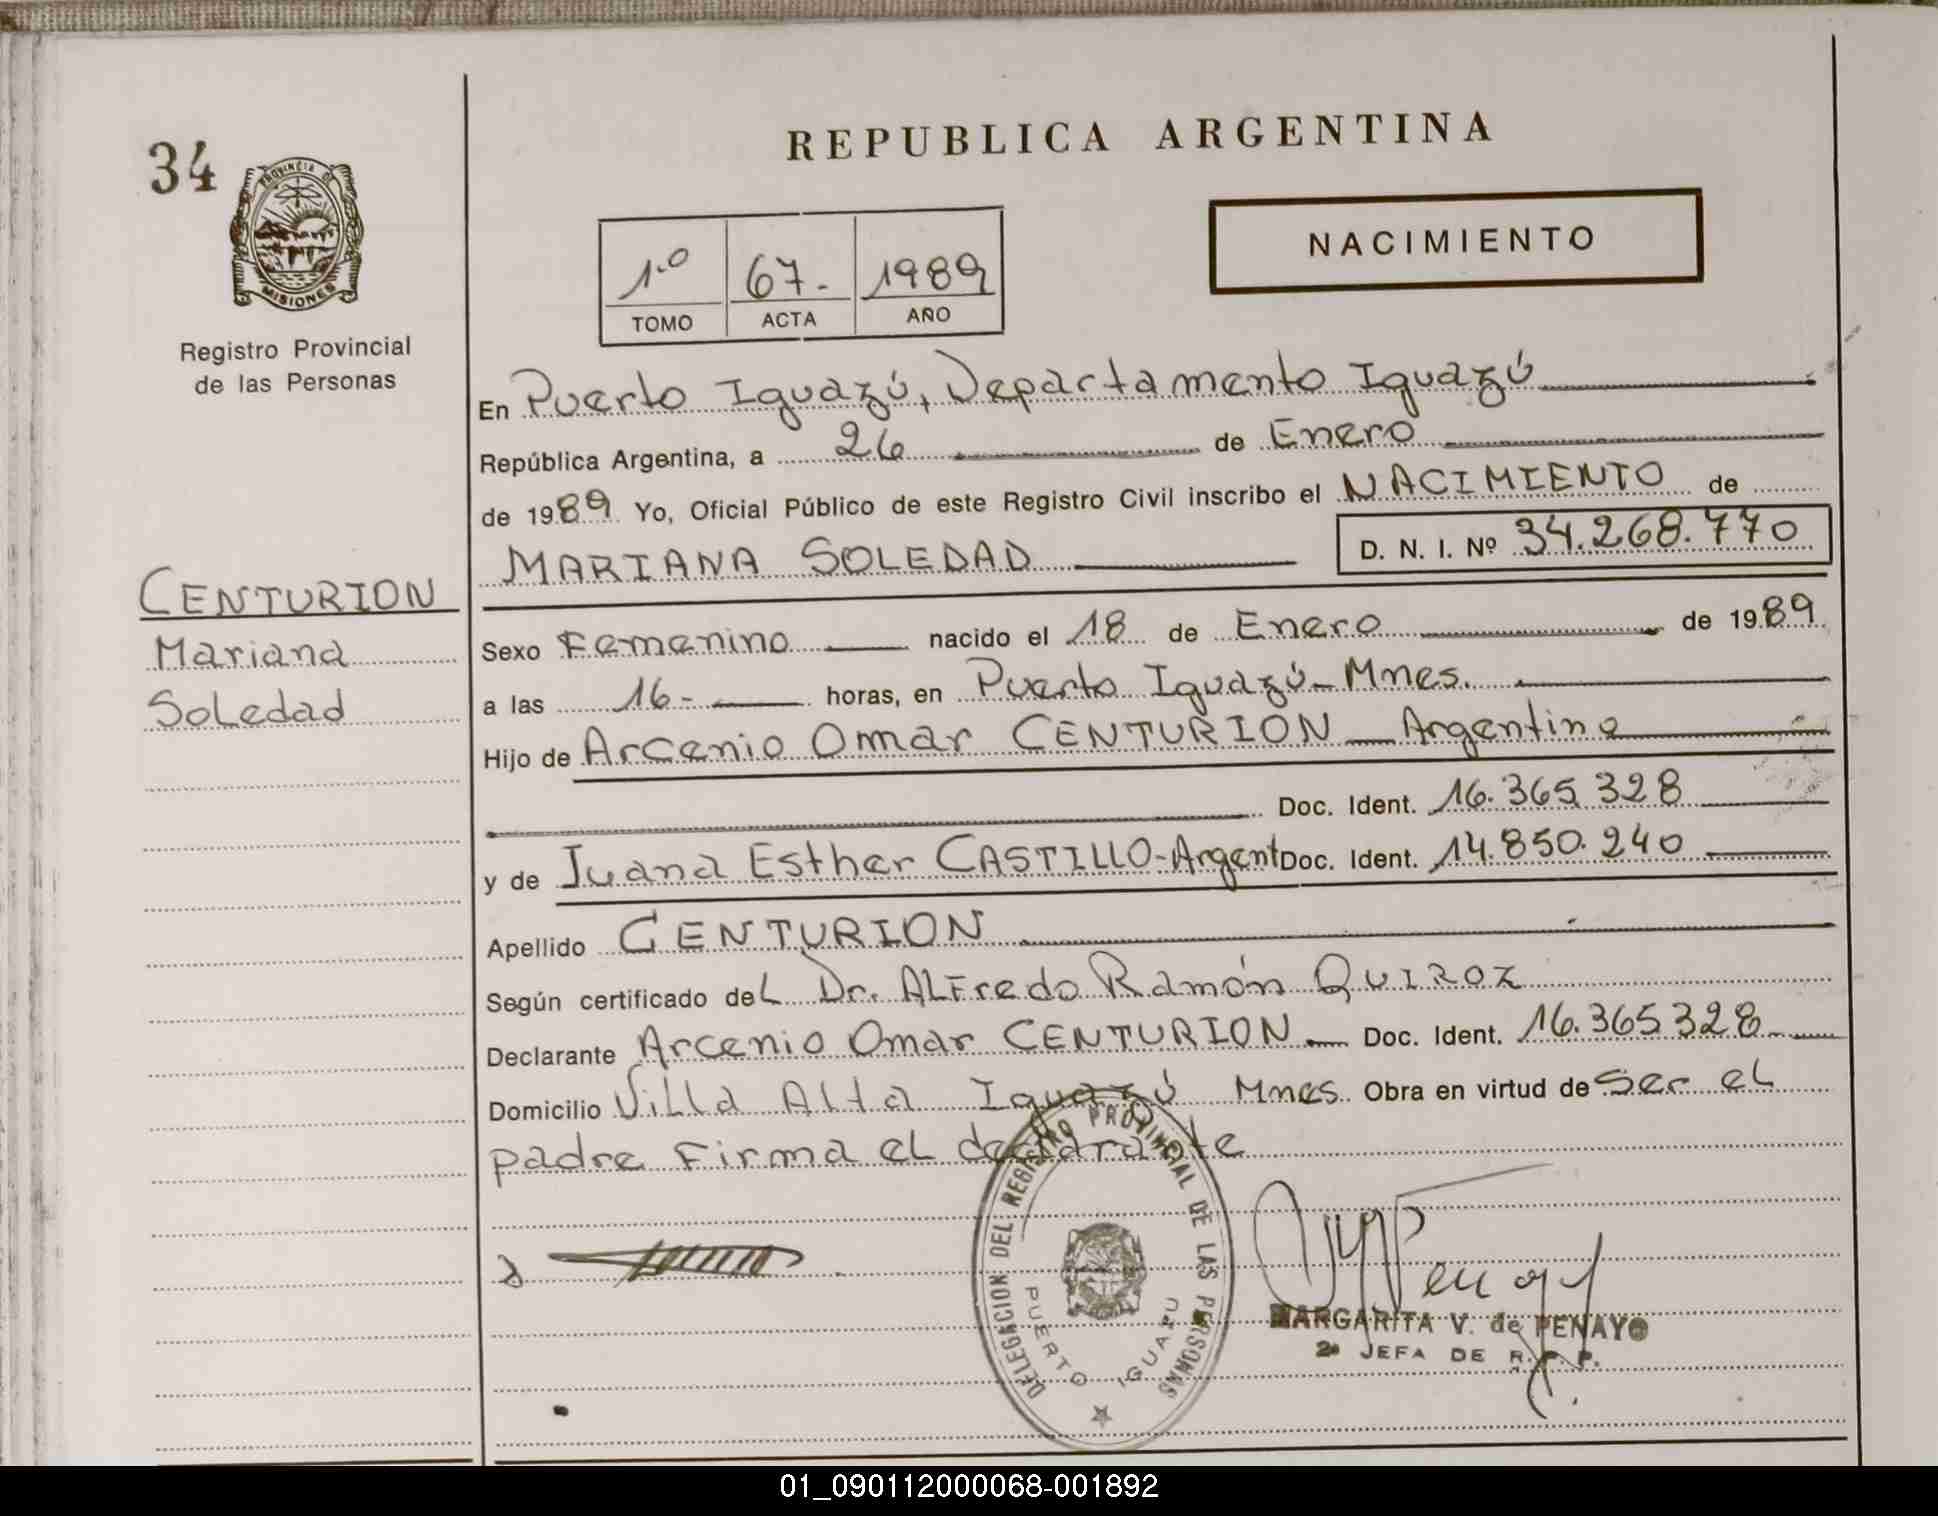 34
PROVINCIA DE
MISIONES
Registro Provincial
de las Personas
CENTURION
Mariana
Soledad
REPUBLICA ARGENTINA
NACIMIENTO
1.º 67.- 1989
TOMO ACTA AÑO
En Puerto Iguazú, Departamento Iguazú
República Argentina, a 26 de Enero
de 1989 Yo, Oficial Público de este Registro Civil inscribo el NACIMIENTO de
MARIANA SOLEDAD D. N. I. Nº 34.268.770
Sexo Femenino nacido el 18 de Enero de 1989
a las 16- horas, en Puerto Iguazú-Mnes.
Hijo de Arcenio Omar CENTURION Argentino
Doc. Ident. 16.365.328
y de Juana Esther CASTILLO-Argent Doc. Ident. 14.850.240
Apellido CENTURION
Según certificado del Dr. Alfredo Ramón QUIROZ
Declarante Arcenio Omar CENTURION Doc. Ident. 16.365.328
Domicilio Villa Alta Iguazú Mnes. Obra en virtud de ser el
padre Firma el declarante
DELEGACION DEL REGISTRO PROVINCIAL DE LAS PERSONAS
PUERTO IGUAZU
MARGARITA V. de PENAYO
2ª JEFA DE R. P. P.
01_090112000068-001892